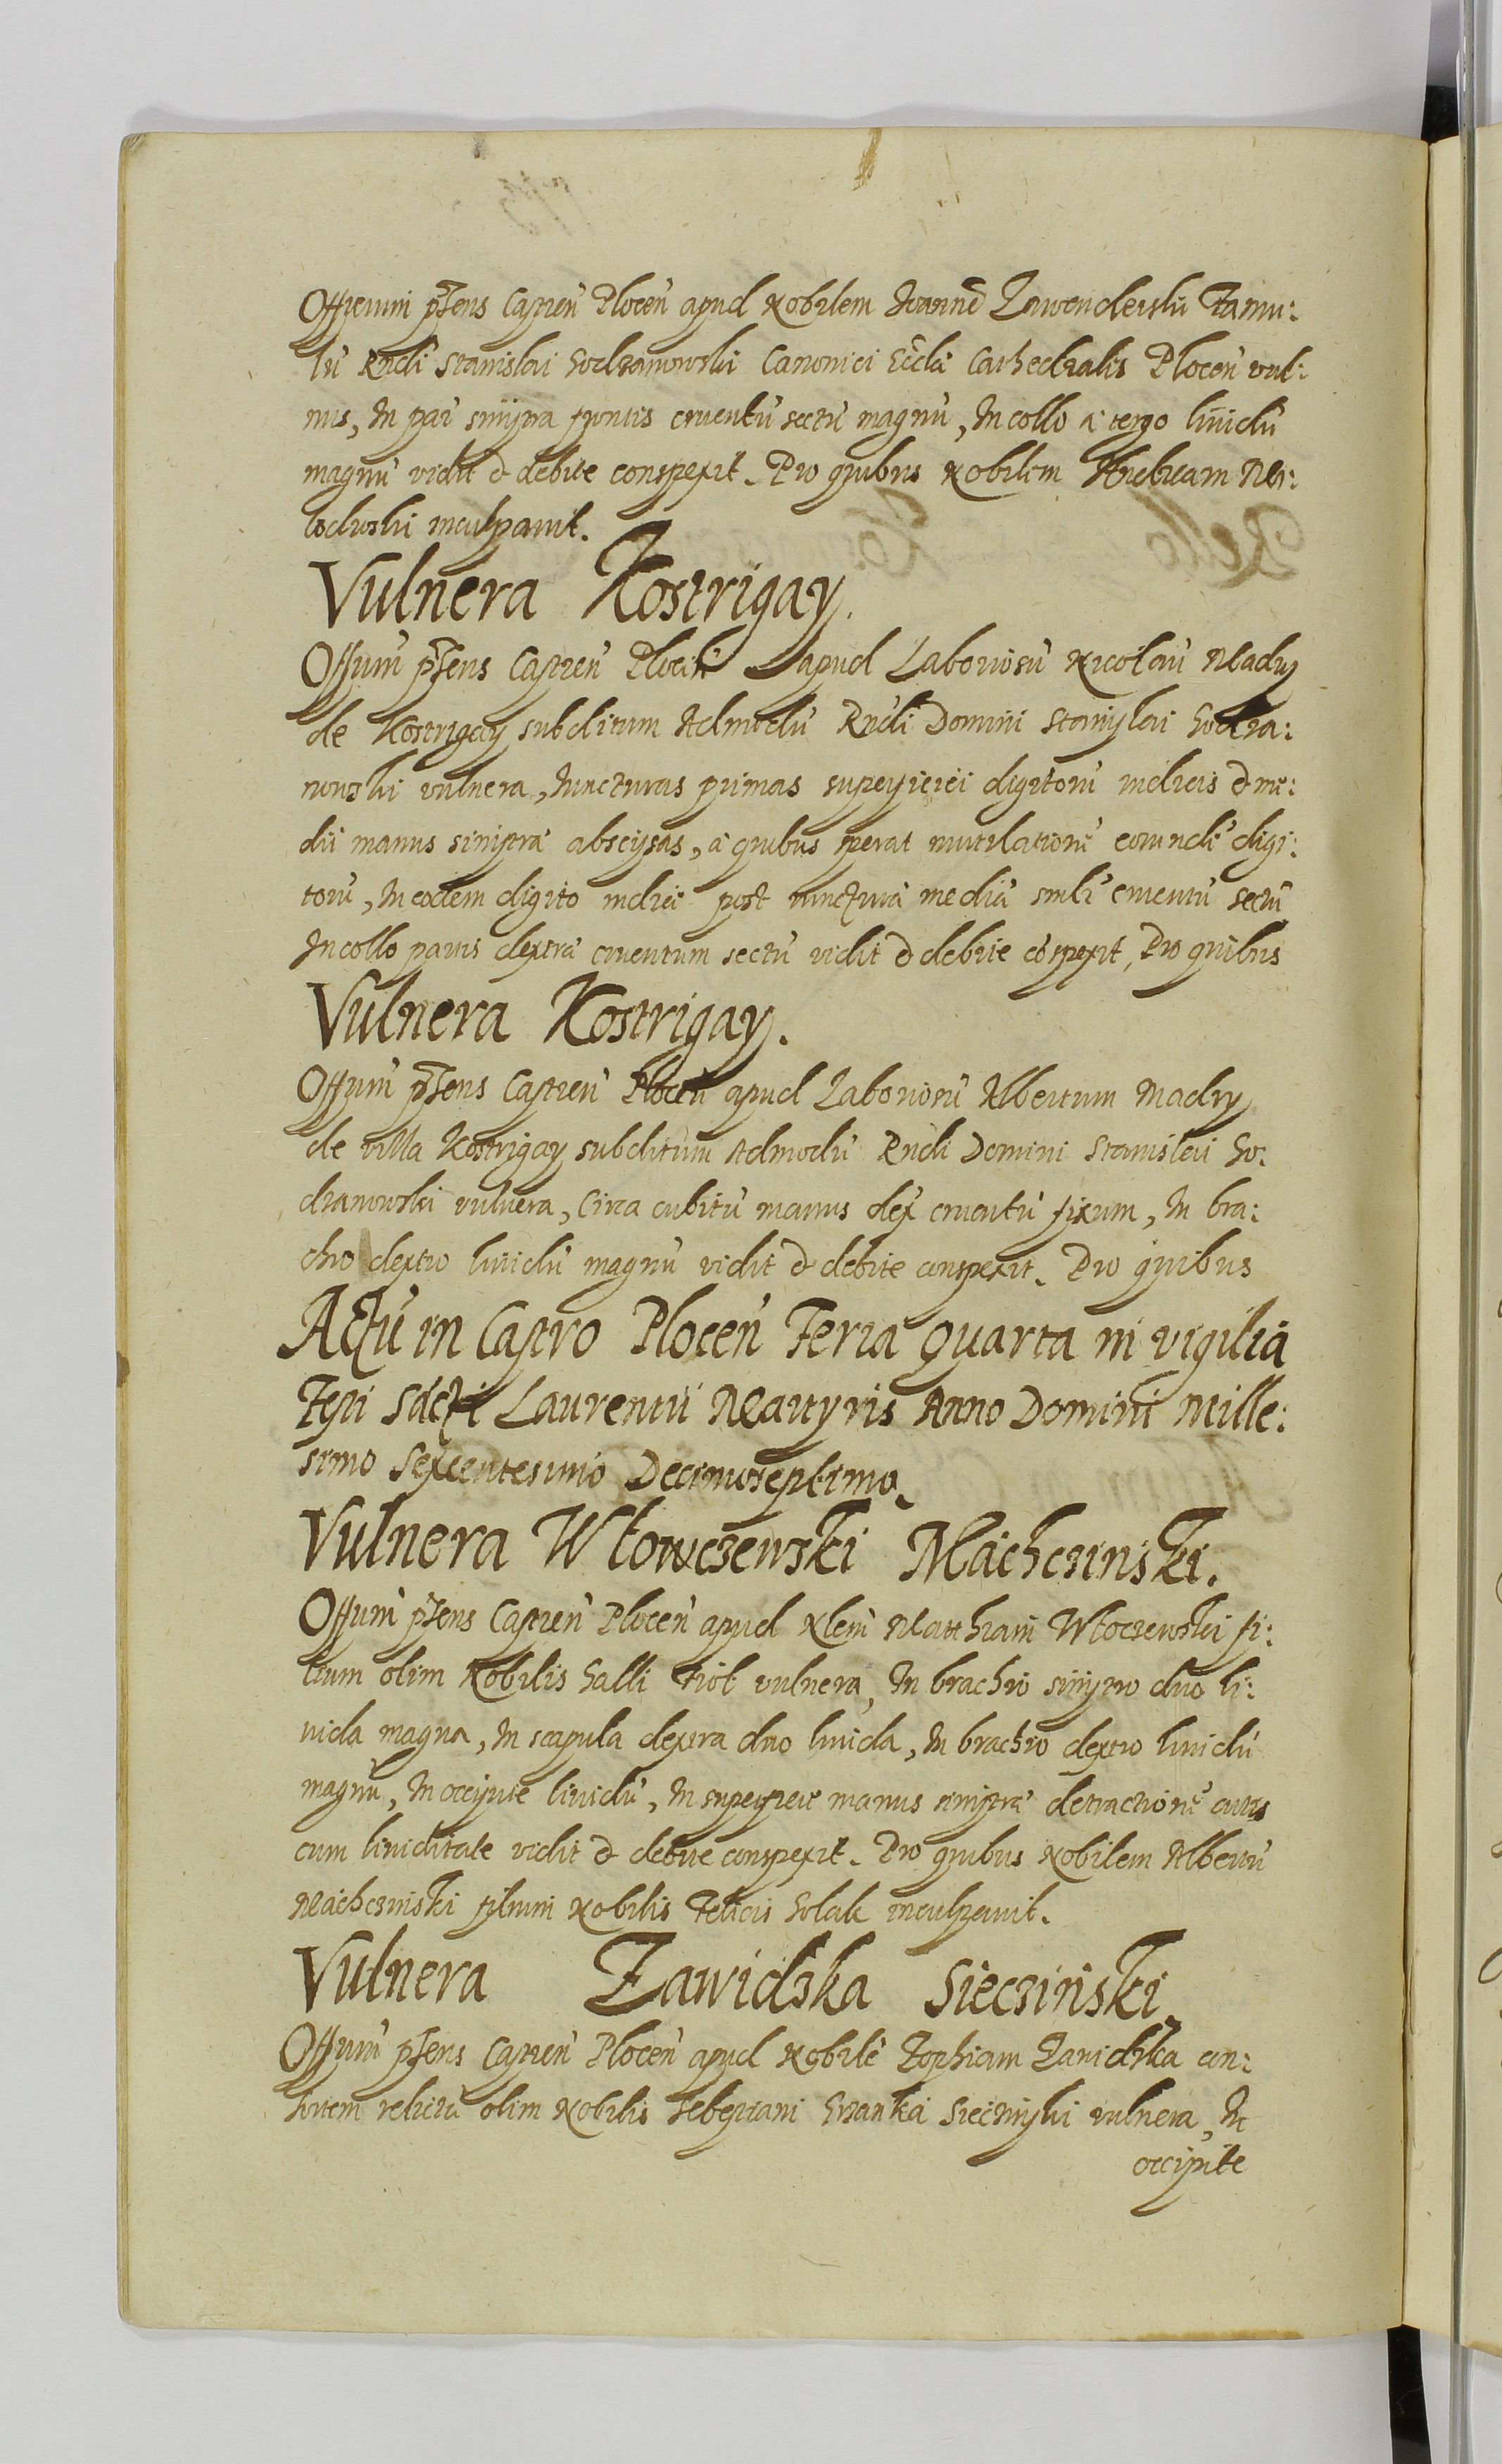 Officium pñs Castren̄ Plocen̄ apud Nobilem Joannē Lawenderski Famu:
lū Rndi Stanislai Sodzanowski Canonici Eccli Cathedralis Plocen̄ vul:
nus, In par sinistra frontis cruentū sectū magnū, In collo a tergo lividū
magnū vidit & debite conspexit. Pro quibus Nobilem Andream Mło:
inculpavit.
Vulnera Kostrigay.
Offium pñs Castren̄ Plocen̄ apud Laboriosū Nicolaū Madry
de Kostrigay subditum Admodū Rndi Domini Stanislai Sodza:
nowski vulnera, Iuncturas primas superficiei digitorū indicis & me:
dii manus sinistra abscissas, a quibus sperat mutilationē eorundē digi:
torū, In eodem digito indici post iuncturā mediā simlr cruentū sectū
In collo partis dextra cruentum sectū vidit & debite cōspexit, Pro quibus
Vulnera Kostrigay.
Offium pñs Castren̄ Plocen̄ apud Laboriosū Albertum Mądry
de villa Kostrigay subditum Admodū Rndi Domini Stanislai So:
dzanowski vulnera, Circa cubitū manus dex cruentū fixum, In bra:
chio dextro lividū magnū vidit & debite conspexit. Pro quibus
Actū in Castro Plocen̄ Feria quarta in vigilia
Festi Sācti Laurentii Martyris Anno Domini Mille:
simo Sexcentesimo Decimoseptimo.
Vulnera Włowczewski Machczinski.
Offium pñs Castren̄ Plocen̄ apud Nlem Matthiam Włoczewski fi:
lium olim Nobilis Galli Fiol vulnera, In brachio sinistro duo li:
vida magna, In scapula dextra duo livida, In brachio dextro lividū
magnū, In occipite lividū, In superficie manus sinistra detractionē cutis
cum lividitate vidit & debite conspexit. Pro quibus Nobilem Albertū
Machczinski filium Nobilis Felicis Solak inculpavit.
Vulnera Zawidzka Sieczinski
Offium pñs Castren̄ Plocen̄ apud Nobilē Zophiam Zawidzka con:
sortem relictā olim Nobilis Sebestiani Sieczinski vulnera, In
occipite